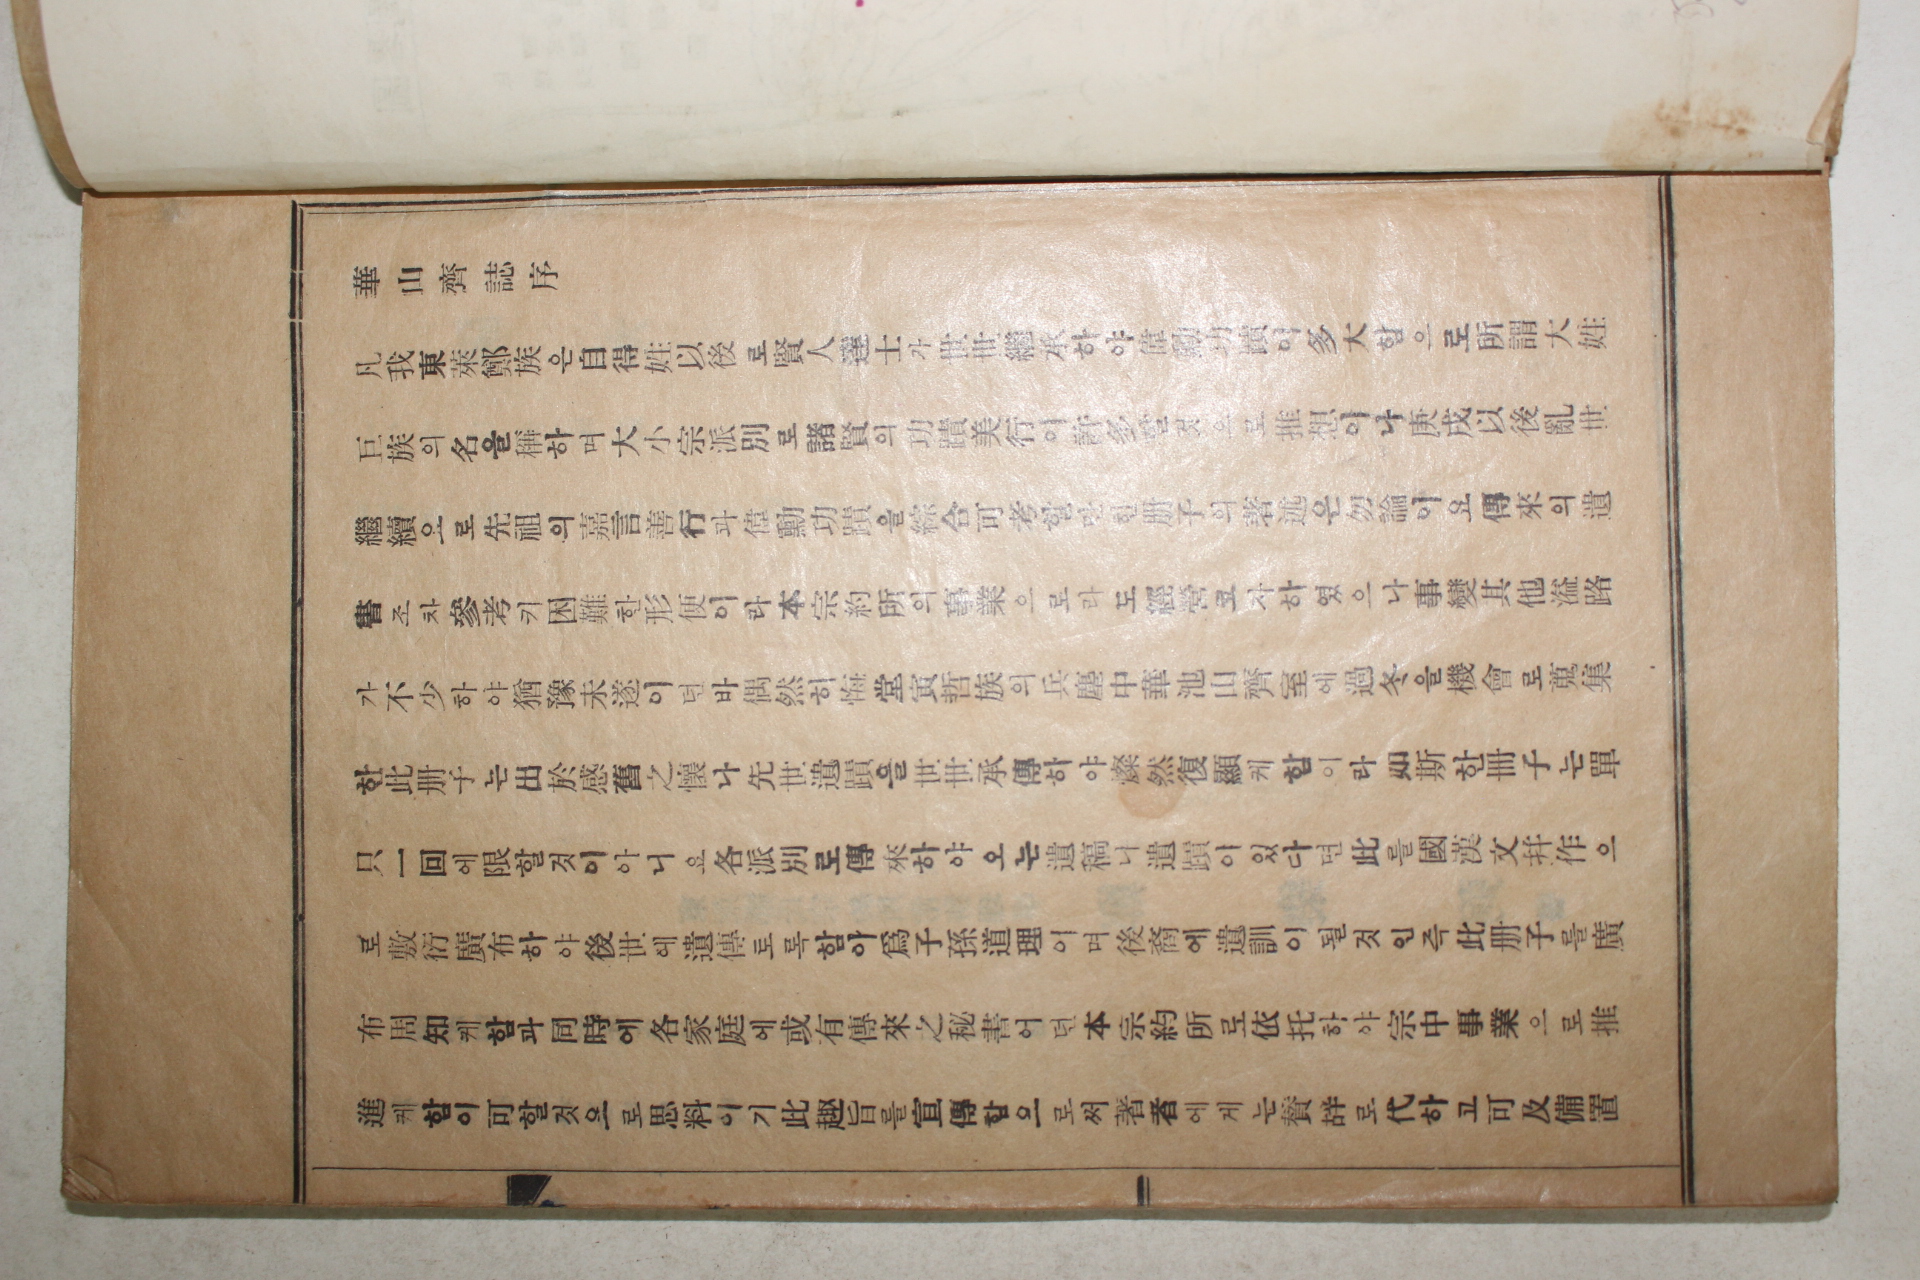 華山齊誌序
凡我東萊鄭族은自得姓以後로賢人達士가世世繼承하야偉勳功蹟이多大함으로所謂大姓
巨族의名을稱하며大小宗派別로諸賢의功蹟美行이許多할것으로推想이나庚戌以後亂世
繼續으로先祖의嘉言善行과偉勳功蹟을綜合可考할만한册子의著述은勿論이요傳來의遺
書조차參考키困難한形便이라本宗約所의事業으로라도經營코자하였으나事變其他溢路
가不少하야猶豫未遂이던바偶然히悔堂寅哲族의兵塵中華池山齊室에過冬을機會로蒐集
한此册子는出於感舊之懷나先世遺蹟을世世承傳하야燦然復顯케함이라如斯한冊子는單
只一回에限할것이아니요各派別로傳來하야오는遺稿나遺蹟이있다면此를國漢文幷作으
로敷衍廣布하야後世에遺傳토록함아爲子孫道理이며後裔에遺訓이될것인즉此册子를廣
布周知케함과同時에各家庭에或有傳來之秘書어던本宗約所로依托하야宗中事業으로推
進케함이可할것으로思料이기此趣旨를宣傳함으로써著者에게는贊辭로代하고可及備置